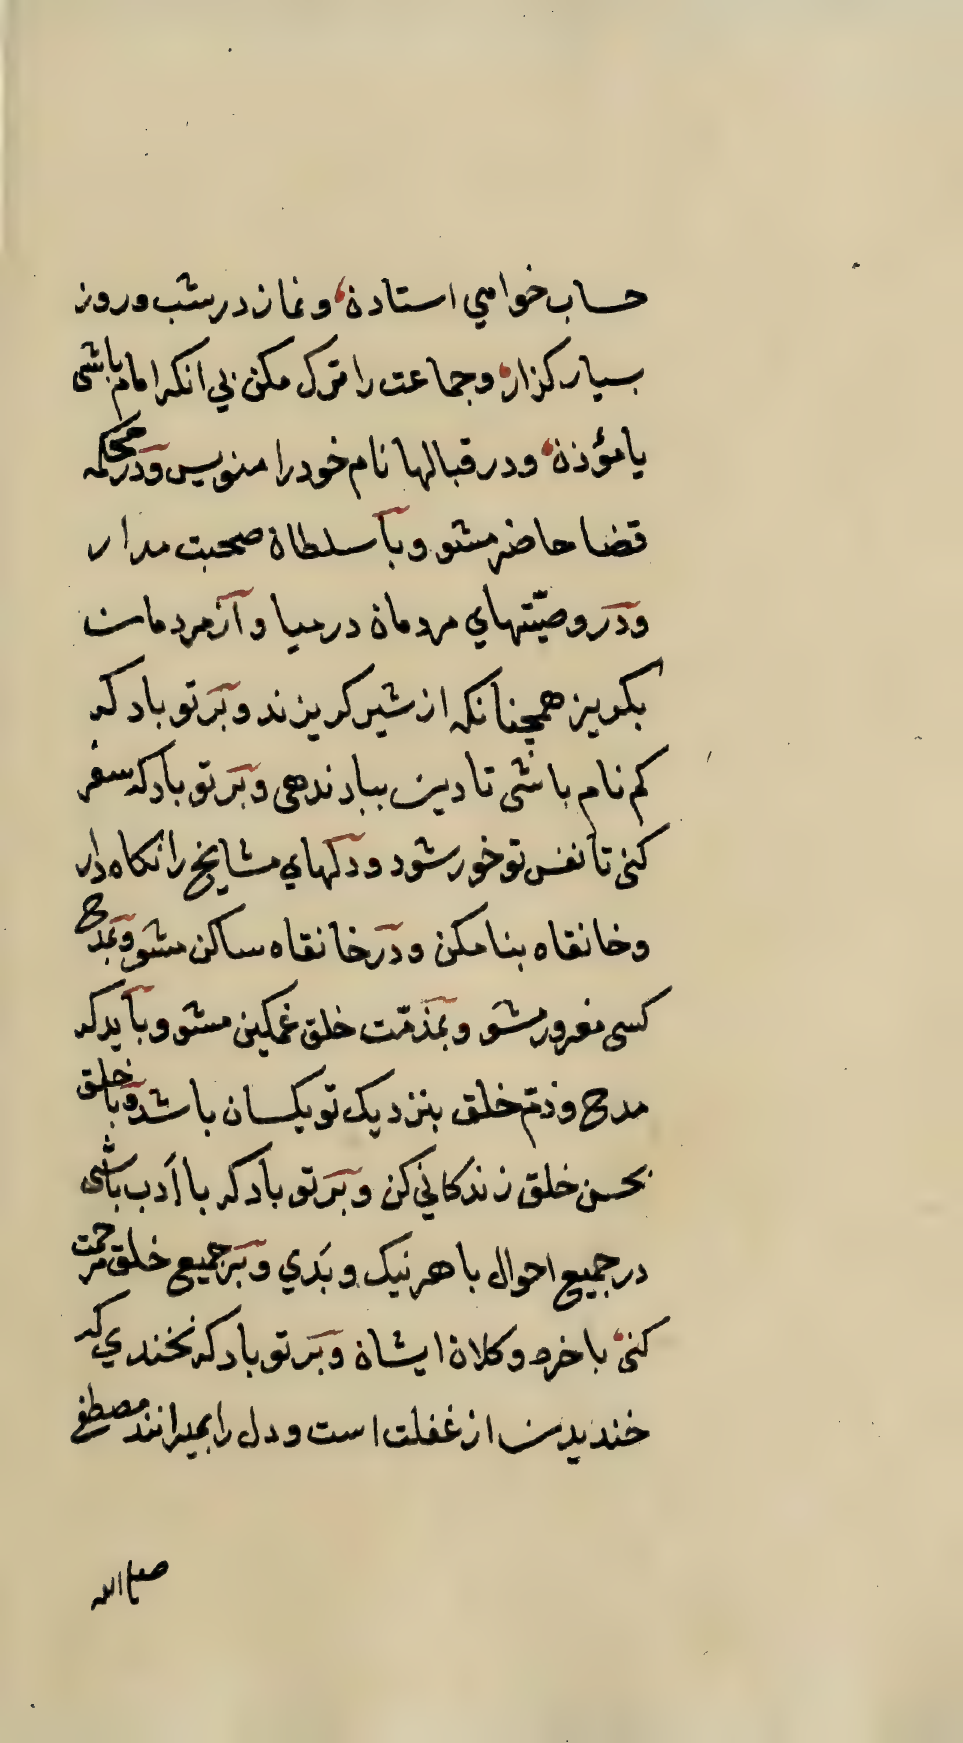 حساب خواهي استادن و نماز در شب و روز
بسيار كزار و جماعت را ترك مكن بي انكه امام باشى
يا مؤذن و در قبالها نام خود را منويس و در محكمه
قضا حاضر مشو و با سلطان صحبت مدار
و در وصيّتهاي مردمان درميا و از مردمان
بكريز همچنانكه از شير كريزند و بر تو باد كه
كم نام باشى تا دين بباد ندهى و بر تو باد كه سفر
كنى تا نفس تو خور شود و دلهاي مشايخ را نكاه دار
و خانقاه بنا مكن و در خانقاه ساكن مشو و بمدح
كسى مغرور مشو و بمذمّت خلق غمكين مشو و بايد كه
مدح و ذمّ خلق بنزديك تو يكسان باشد و با خلق
بحسن خلق زندكاني كن و بر تو باد كه با اَدب باشى
در جميع احوال با هر نيك و بَدي و بر جميع خلق رحمت
كنى با خرد و كلان ايشان و بر تو باد كه نخندي كه
خنديدن از غفلت است و دل را بميرانند مصطفى
صلى الله